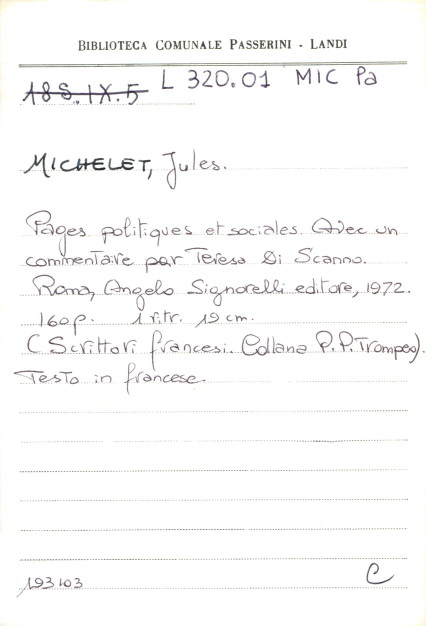 BIBLIOTECA COMUNALE PASSERINI - LANDI
18S.IX.5 L 320.01 MIC Pa
MICHELET, Jules.
Pages politiques et sociales. Avec un
commentaire par Teresa Di Scanno.
Roma, Angelo Signorelli editore, 1972.
160p. 1 ritr. 19 cm.
(Scrittori francesi. Collana P.P.Trompeo).
Testo in francese.
193103 C